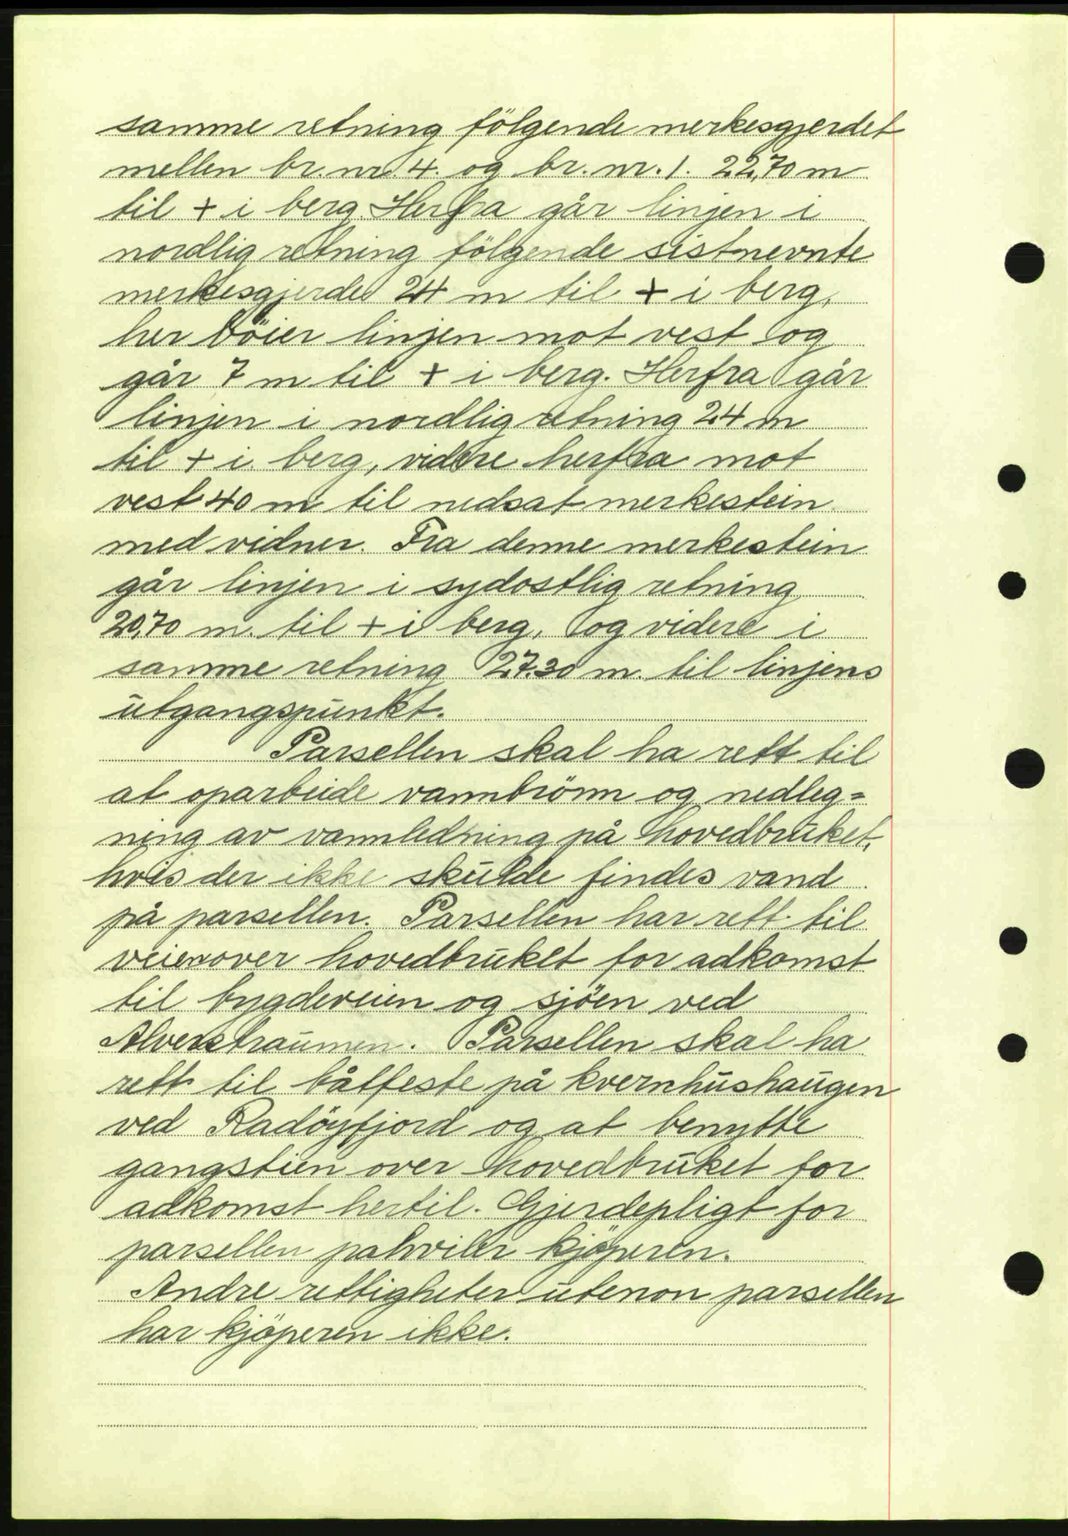 samme retning fölgende merkesgjerdet
mellen br. nr. 4. og br. nr. 1. 22,70 m
til + i berg. Herfra går linjen i
nordlig retning fölgende sistnevnte
merkesgjerde 24 m til + i berg,
her böier linjen mot vest og
går 7 m til + i berg. Herfra går
linjen i nordlig retning 24 m
til + i berg, videre herfra mot
vest 40 m til nedsat merkestein
med vidner. Fra denne merkestein
går linjen i sydostlig retning
20,70 m. til + i berg, og videre i
samme retning 27.30 m. til linjens
utgangspunkt.
Parsellen skal ha rett til
at oparbeide vannbrönn og nedleg=
ning av vannledning på hovedbruket,
hvis der ikke skulde findes vand
på parsellen. Parsellen har rett til
veien over hovedbruket for adkomst
til bygdeveien og sjöen ved
Alverstraumen. Parsellen skal ha
rett til båtfeste på kvernhushaugen
ved Radöyfjord og at benytte
gangstien over hovedbruket for
adkomst hertil. Gjerdepligt for
parsellen pahviler kjöperen.
Andre rettigheter utenon parsellen
har kjöperen ikke.